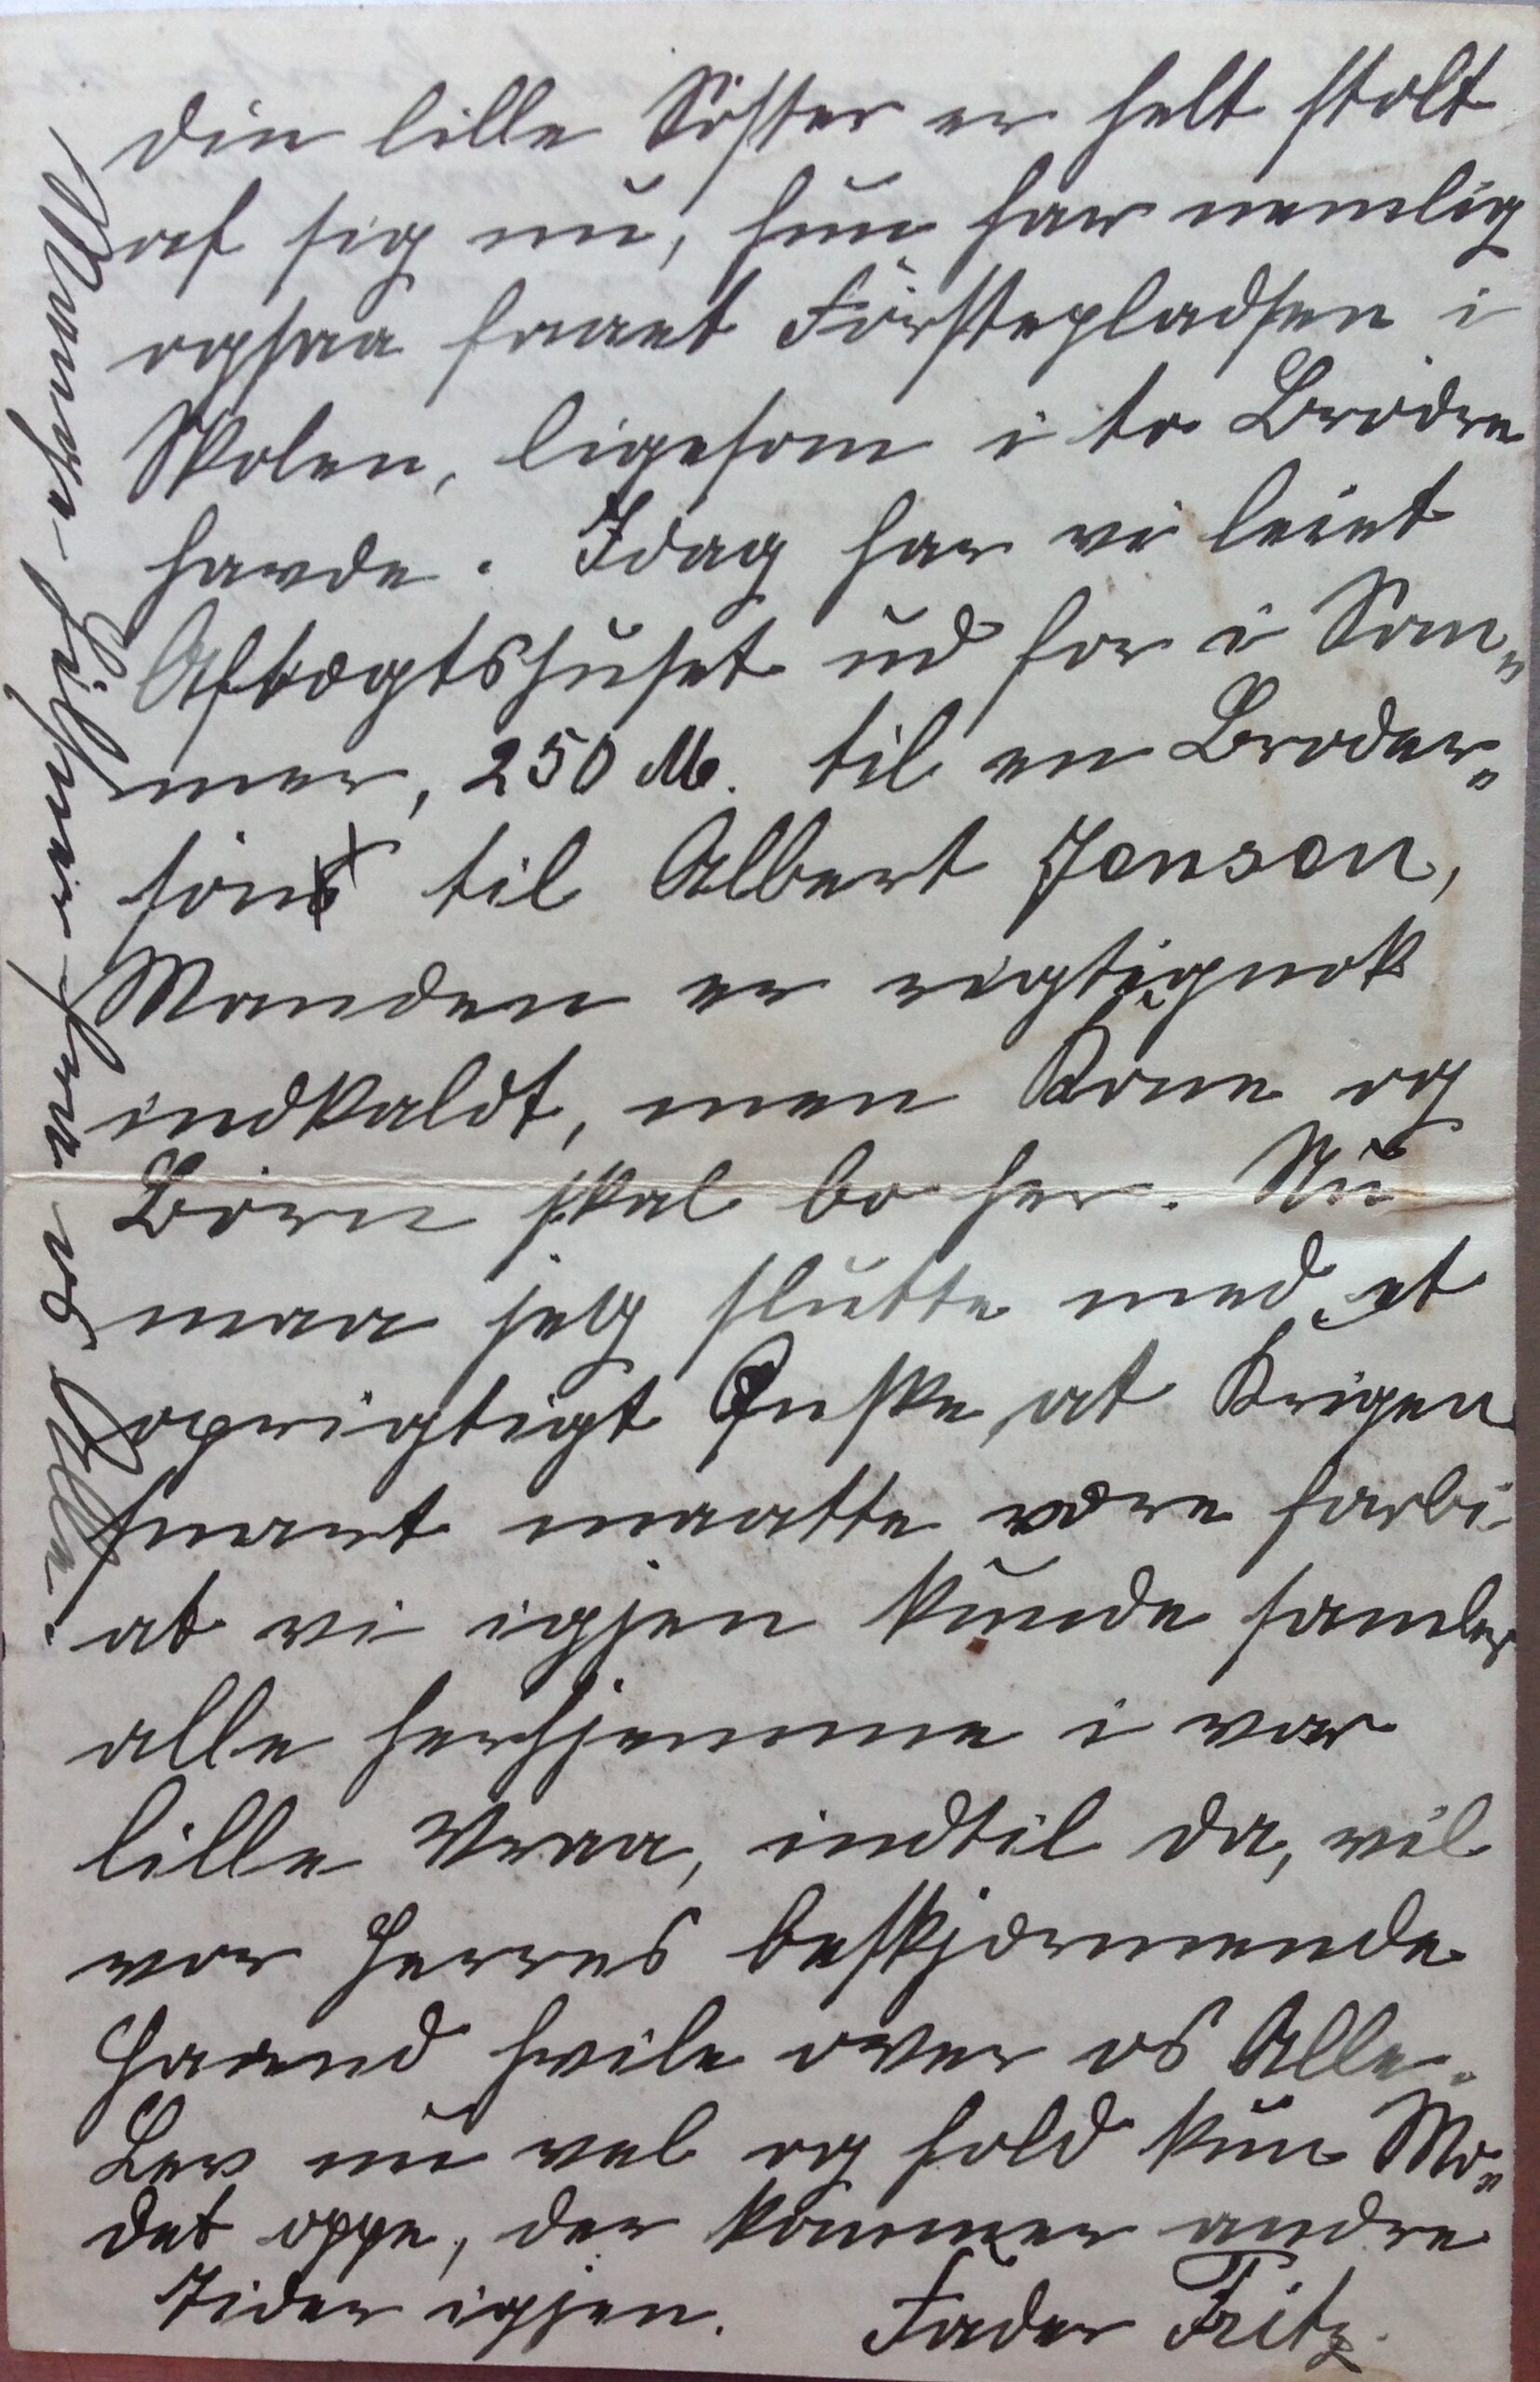 din lille Söster er helt stolt
af sig nu, hun har nemlig
ogsaa faaet Förstepladsen i
Skolen, ligesom i to Brödre
havde. Idag har vi leiet
Aftægtshuset ud for i Som„
mer, 250 M. til en Broder„
sön til Albert Jensen,
Manden er rigtignok
indkaldt, men Kone og
Börn skal bo her. Nu
maa jeg slutte med et
oprigtigt Ønske, at Krigen
snart maatte være forbi
at vi igjen kunde samles
alle herhjemme i vor
lille Vraa, indtil da, vil
vor Herres beskjærmende
Haand hvile over os Alle.
Lev nu vel og hold kun Mo„
det oppe, der kommer andre
Tider igjen. Fader Fritz.
Mange Hilsner fra os Alle.